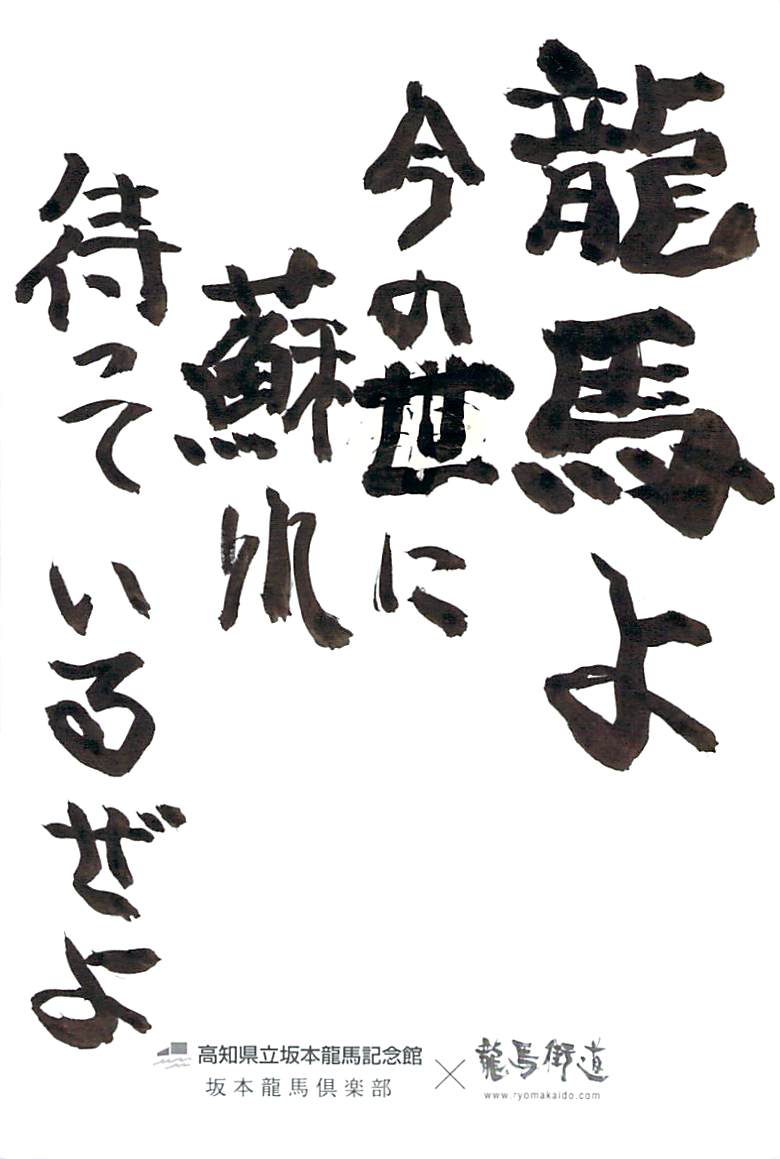 龍馬よ
今の世に
蘇れ
待っているぜよ
高知県立坂本龍馬記念館
坂本龍馬倶楽部
×
龍馬街道
www.ryomakaido.com